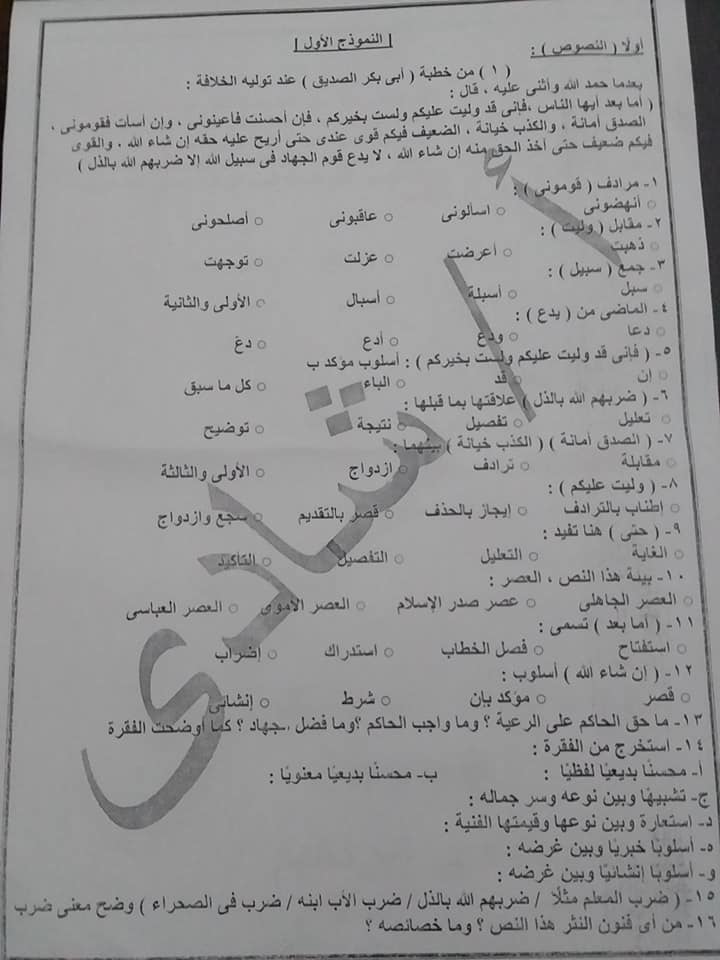 | النموذج الأول |
أولا ( النصوص ) :
( ١ ) من خطبة ( أبى بكر الصديق ) عند توليه الخلافة :
بعدما حمد الله وأثنى عليه ، قال :
( أما بعد أيها الناس ،فإنى قد وليت عليكم ولست بخيركم ، فإن أحسنت فأعينونى ، وإن أسأت فقومونى ،
الصدق أمانة ، والكذب خيانة ، الضعيف فيكم قوى عندى حتى أريح عليه حقه إن شاء الله ، والقوى
فيكم ضعيف حتى أخذ الحق منه إن شاء الله ، لا يدع قوم الجهاد فى سبيل الله إلا ضربهم الله بالذل )
١- مرادف ( قومونى ) :
○ أنهضونى ○ اسألونى ○ عاقبونى ○ أصلحونى
٢- مقابل ( وليت ) :
○ ذهبت ○ أعرضت ○ عزلت ○ توجهت
٣- جمع ( سبيل ) :
○ سبل ○ أسبلة ○ أسبال ○ الأولى والثانية
٤- الماضى من ( يدع ) :
○ دعا ○ ودع ○ أدع ○ دغ
٥- ( فإنى قد وليت عليكم ولست بخيركم ) : أسلوب مؤكد ب
○ إن ○ قد ○ الباء ○ كل ما سبق
٦- ( ضربهم الله بالذل ) علاقتها بما قبلها :
○ تعليل ○ تفصيل ○ نتيجة ○ توضيح
٧- ( الصدق أمانة ) ( الكذب خيانة ) بينهما :
○ مقابلة ○ ترادف ○ ازدواج ○ الأولى والثالثة
٨- ( وليت عليكم ) :
○ إطناب بالترادف ○ إيجاز بالحذف ○ قصر بالتقديم ○ سجع وازدواج
٩- ( حتى ) هنا تفيد :
○ الغاية ○ التعليل ○ التفصيل ○ التأكيد
١٠- بيئة هذا النص ، العصر :
○ العصر الجاهلى ○ عصر صدر الإسلام ○ العصر الأموى ○ العصر العباسى
١١- ( أما بعد ) تسمى :
○ استفتاح ○ فصل الخطاب ○ استدراك ○ إضراب
١٢- ( إن شاء الله ) أسلوب :
○ قصر ○ مؤكد بإن ○ شرط ○ إنشائى
١٣- ما حق الحاكم على الرعية ؟ وما واجب الحاكم ؟وما فضل جهاد ؟ كما أوضحت الفقرة
١٤- استخرج من الفقرة :
أ- محسنًا بديعيًا لفظيًا : ب- محسنًا بديعيًا معنويًا :
ج- تشبيهًا وبين نوعه وسر جماله :
د- استعارة وبين نوعها وقيمتها الفنية :
ه- أسلوبًا خبريًا وبين غرضه :
و- أسلوبًا إنشائيًا وبين غرضه :
١٥- ( ضرب المعلم مثلًا / ضربهم الله بالذل / ضرب الأب ابنه / ضرب فى الصحراء ) وضح معنى ضرب
١٦- من أى فنون النثر هذا النص ؟ وما خصائصه ؟
أ / شادى